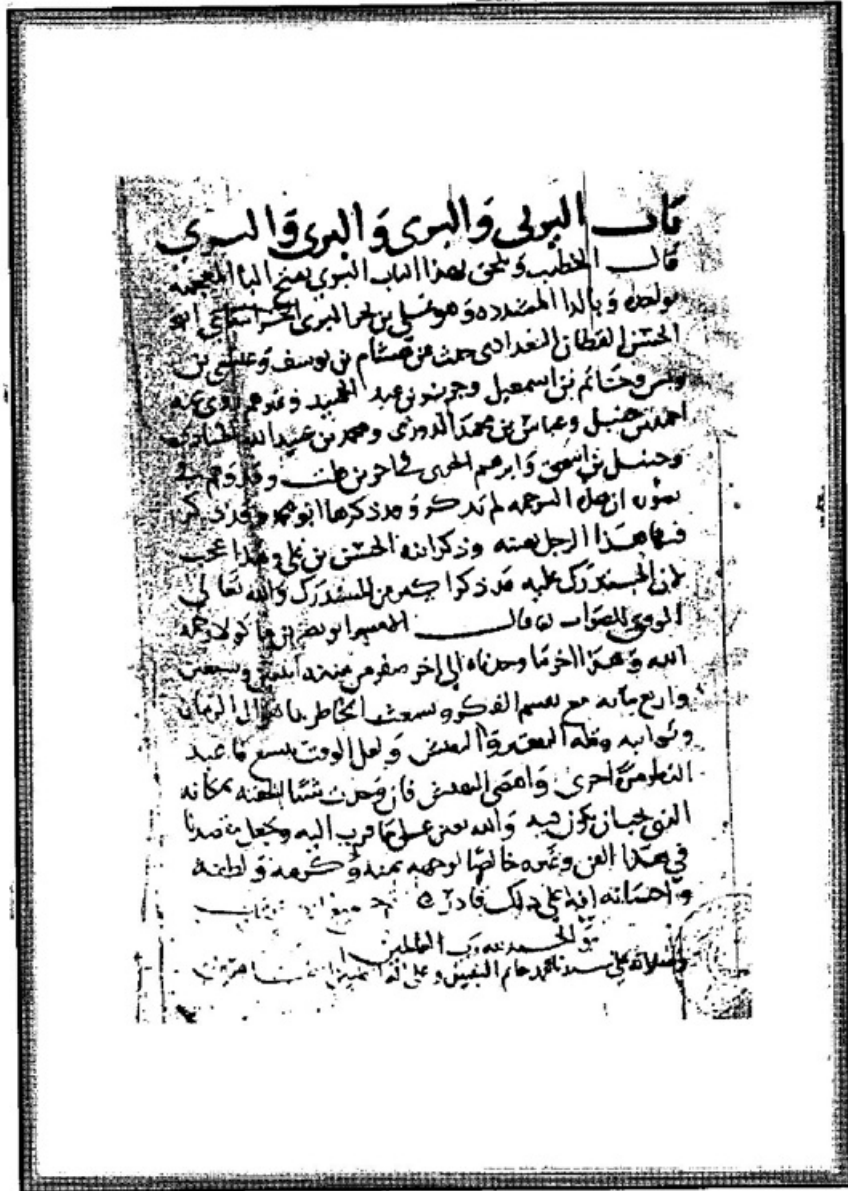 باب البري والبري والبري والبري
قال الخطيب ويلحق بهذا الباب البري بفتح الباء المعجمة
بواحدة وبالراء المشددة وهو علي بن بحر البري
الحسن القطان البغدادي حدث عن هشام بن يوسف وعيسى بن
يونس وحاتم بن اسمعيل وجرير بن عبد الحميد وغيرهم روى عنه
احمد بن حنبل وعباس بن محمد الدوري ومحمد بن عبيد الله المنادي
وحنبل بن اسحق وابرهيم الحربي في اخرين قلت وقد وهم في
قوله ان هذه الترجمة لم تذكر وقد ذكرها ابو محمد وقد ذكر
فيها هذا الرجل بعينه وذكر انه الحسن بن علي وهذا عجب
لان المستدرك عليه قد ذكر اكثر من المستدرك والله تعالى
الموفق للصواب قال الامير ابو نصر بن ماكولا رحمه
الله وهذا اخر ما وجدناه الى اخر صفر من سنة وستين
واربع مائة مع تقسم الفكر وتشعث الخاطر باهوال الزمان
ونوائبه وقلة ولعل الوقت يتسع فاعيد
النظر مرة اخرى فان وجدت شيئا الحقته بمكانه
الذي يجب ان يكون فيه والله يعين على ما قرب اليه ويجعل قصدنا
في هذا الفن وغيره خالصا لوجهه بمنه وكرمه ولطفه
واحسانه انه على ذلك قادر
والحمد لله رب العالمين
وصلواته على سيدنا محمد خاتم النبيين وعلى اله الطاهرين